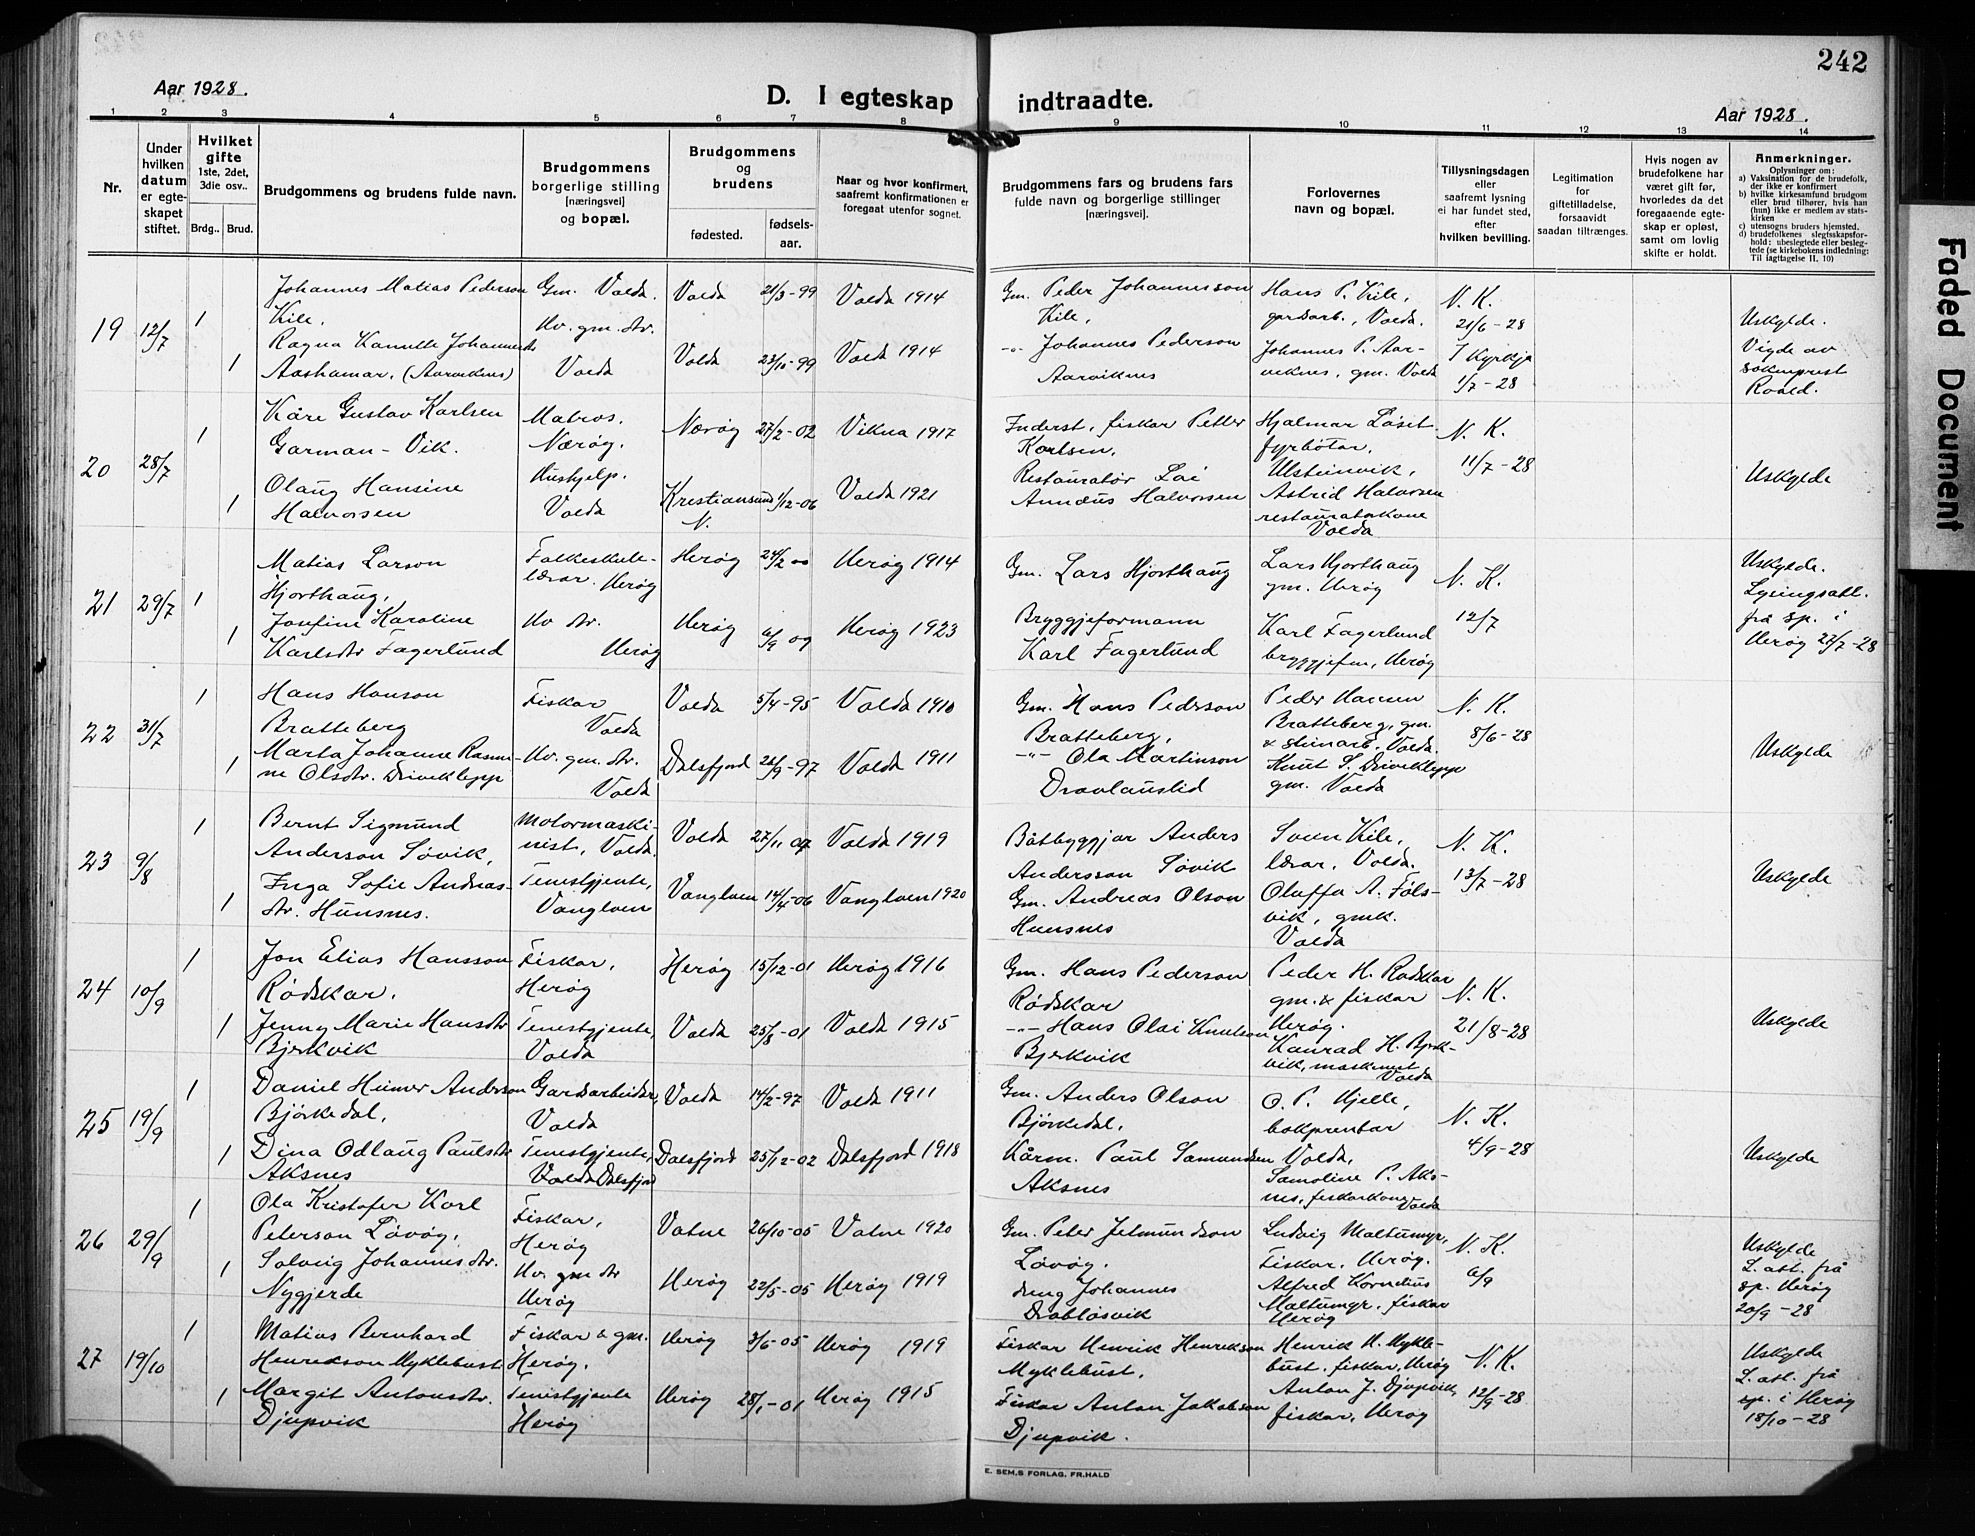 242
Aar 1928.
D. I egteskap indtraadte.
Aar 1928.
1 2 3 4 5 6 7 8 9 10 11 12 13 14
Nr.
Under hvilken datum er egteskapet stiftet.
Hvilket gifte 1ste, 2det, 3die osv..
Brdg.. Brud.
Brudgommens og brudens fulde navn.
Brudgommens borgerlige stilling [næringsvei] og bopæl.
Brudgommens og brudens
fødested. fødselsaar.
Naar og hvor konfirmert, saafremt konfirmationen er foregaat utenfor sognet.
Brudgommens fars og brudens fars fulde navn og borgerlige stillinger [næringsvei].
Forlovernes navn og bopæl.
Tillysningsdagen eller saafremt lysning ei har fundet sted, efter hvilken bevilling.
Legitimation for giftetilladelse, forsaavidt saadan tiltrænges.
Hvis nogen av brudefolkene har været gift før, hvorledes da det foregaaende egteskap er opløst, samt om lovlig skifte er holdt.
Anmerkninger.
Oplysninger om:
a) Vaksination for de brudefolk, der ikke er konfirmert
b) hvilke kirkesamfund brudgom eller brud tilhører, hvis han (hun) ikke er medlem av statskirken
c) utensogns bruders hjemsted.
d) brudefolkenes slegtsskapsforhold: ubeslegtede eller beslegtede (se kirkebokens indledning: Til iagttagelse II, 10)
19 12/7 1 Johannes Matias Pederson Kile, Gm. Volda. Volda 21/3-99 Volda 1914 Gm. Peder Johannesson Kile, Hans P. Kile, gardarb., Volda. N. K. 21/6-28 Uskylde.
1 Ragna Kamille Johannesdtr Aashamar, (Aarviknes) Uv. gm. dtr. Volda Volda 23/10-99 Volda 1914 -"- Johannes Pederson Aarviknes Johannes P. Aarviknes, gm. Volda I Kyrkja 1/7-28 Vigde av sokneprest Roald.
20 28/7 1 Kåre Gustav Karlsen Garman-Vik. Matros. Nærøy. Nærøy 27/2-02 Vikna 1917 Inderst, fiskar Petter Karlsen, Hjalmar Løsit fyrbøtar, Ulsteinvik, N. K. 11/7-28 Uskylde
1 Olaug Hansine Halvorsen Hushjelp. Volda Kristiansund N. 1/12-06 Volda 1921 Restauratør Lai Annæus Halvorsen Astrid Halvorsen restauratørkone Volda
21 29/7 1 Matias Larson Hjorthaug, Folkeskulelærar. Herøy Herøy 24/2 00 Herøy 1914 Gm. Lars Hjorthaug Lars Hjorthaug gm. Herøy N. K. 12/7 Uskylde. Lysingsatt. frå sp. i Herøy 27/7-28
1 Josefine Karoline Karlsdtr Fagerlund Uv dtr. Herøy Herøy 6/9 09 Herøy 1923 Bryggjeformann Karl Fagerlund Karl Fagerlund bryggjefm, Herøy
22 31/7 1 Hans Hanson Bratteberg Fiskar Volda Volda 5/4-95 Volda 1910 Gm. Hans Pederson Bratteberg, Peder Hansen Bratteberg, gm. & steinarb. Volda. N. K. 8/6-28 Uskylde
1 Marta Johanne Rasmine Olsdtr. Driveklepp Uv. gm. dtr. Volda Dalsfjord 28/9-97 Volda 1911 -"- Ola Martinson Dravlauslid Knut S. Driveklepp gm. Volda
23 9/8 1 Bernt Sigmund Anderson Søvik, Motormaskinist, Volda. Volda 27/11 04 Volda 1919 Båtbyggjar Anders Andersson Søvik Sven Kile, lærar, Volda. N. K. 13/7-28 Uskylde
1 Inga Sofie Andreasdtr. Hunsnes. Tenestgjente, Vanylven Vanylven 14/4-06 Vanylven 1920 Gm. Andreas Olson Hunsnes Oluffa A. Følsvik, gmk. Volda
24 10/9 1 Jon Elias Hansson Rødskar. Fiskar, Herøy Herøy 15/12-01 Herøy 1916 Gm. Hans Pederson Rødskar Peder H. Rødskar gm. & fiskar Herøy. N. K. 21/8-28 Uskylde
1 Jenny Marie Hansdtr Bjerkvik Tenestgjente, Volda Volda 25/8-01 Volda 1915 -"- Hans Olai Knutson Bjerkvik Konrad H. Bjerkvik, maskinist Volda
25 19/9 1 Daniel Heimer Anderson Bjørkedal, Gardsarbeider, Volda Volda 14/2-97 Volda 1911 Gm. Anders Olson Bjørkedal, O. P. Hjelle, bokprentar Volda, N. K. 4/9-28 Uskylde
1 Dina Odlaug Paulsdtr Aksnes Tenestgjente, Volda Dalsfjord Dalsfjord 25/12-02 Dalsfjord 1918 Kårm. Paul Samundsen Aksnes Samoline P. Aksnes, fiskarkone Volda
26 29/9 1 Ola Kristofer Karl Peterson Løvøy, Fiskar, Herøy Vatne 26/10-05 Vatne 1920 Gm. Peter Jetmundson Løvøy. Ludvig Maltumyr, Fiskar, Herøy. N. K. 6/9 Uskylde L. att. frå sp. Herøy 20/9-28
1 Solveig Johannesdtr. Nygjerde Uv. gm dtr Herøy Herøy 22/5-05 Herøy 1919 dreng Johannes Drabløsvik Alfred Kornelius Maltumyr, fiskar Herøy
27 19/10 1 Matias Bernhard Henrikson Myklebust Fiskar & gm. Herøy. Herøy 3/6-05 Herøy 1919 Fiskar Henrik Henrikson Myklebust, Henrik H. Myklebust, fiskar, Herøy N. K. 12/9-28 Uskylde L. att. frå sp. i Herøy 18/10-28
1 Margit Antonsdtr. Djupvik Tenestgjente Herøy Herøy 28/1-01 Herøy 1915 Fiskar Anton Jakobson Djupvik. Anton J. Djupvik fiskar, Herøy
E. SEM.S FORLAG, FR.HALD
Faded Document